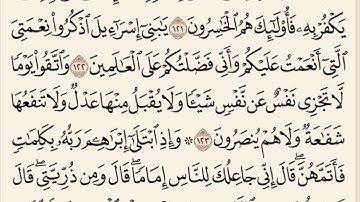 يَكۡفُرۡ بِهِۦ فَأُوْلَٰٓئِكَ هُمُ ٱلۡخَٰسِرُونَ ١٢١ يَٰبَنِيٓ إِسۡرَٰٓءِيلَ ٱذۡكُرُواْ نِعۡمَتِيَ
ٱلَّتِيٓ أَنۡعَمۡتُ عَلَيۡكُمۡ وَأَنِّي فَضَّلۡتُكُمۡ عَلَى ٱلۡعَٰلَمِينَ ١٢٢ وَٱتَّقُواْ يَوۡمٗا
لَّا تَجۡزِي نَفۡسٌ عَن نَّفۡسٖ شَيۡـٔٗا وَلَا يُقۡبَلُ مِنۡهَا عَدۡلٞ وَلَا تَنفَعُهَا
شَفَٰعَةٞ وَلَا هُمۡ يُنصَرُونَ ١٢٣ ۞ وَإِذِ ٱبۡتَلَىٰٓ إِبۡرَٰهِـۧمَ رَبُّهُۥ بِكَلِمَٰتٖ
فَأَتَمَّهُنَّۖ قَالَ إِنِّي جَاعِلُكَ لِلنَّاسِ إِمَامٗاۖ قَالَ وَمِن ذُرِّيَّتِيۖ قَالَ